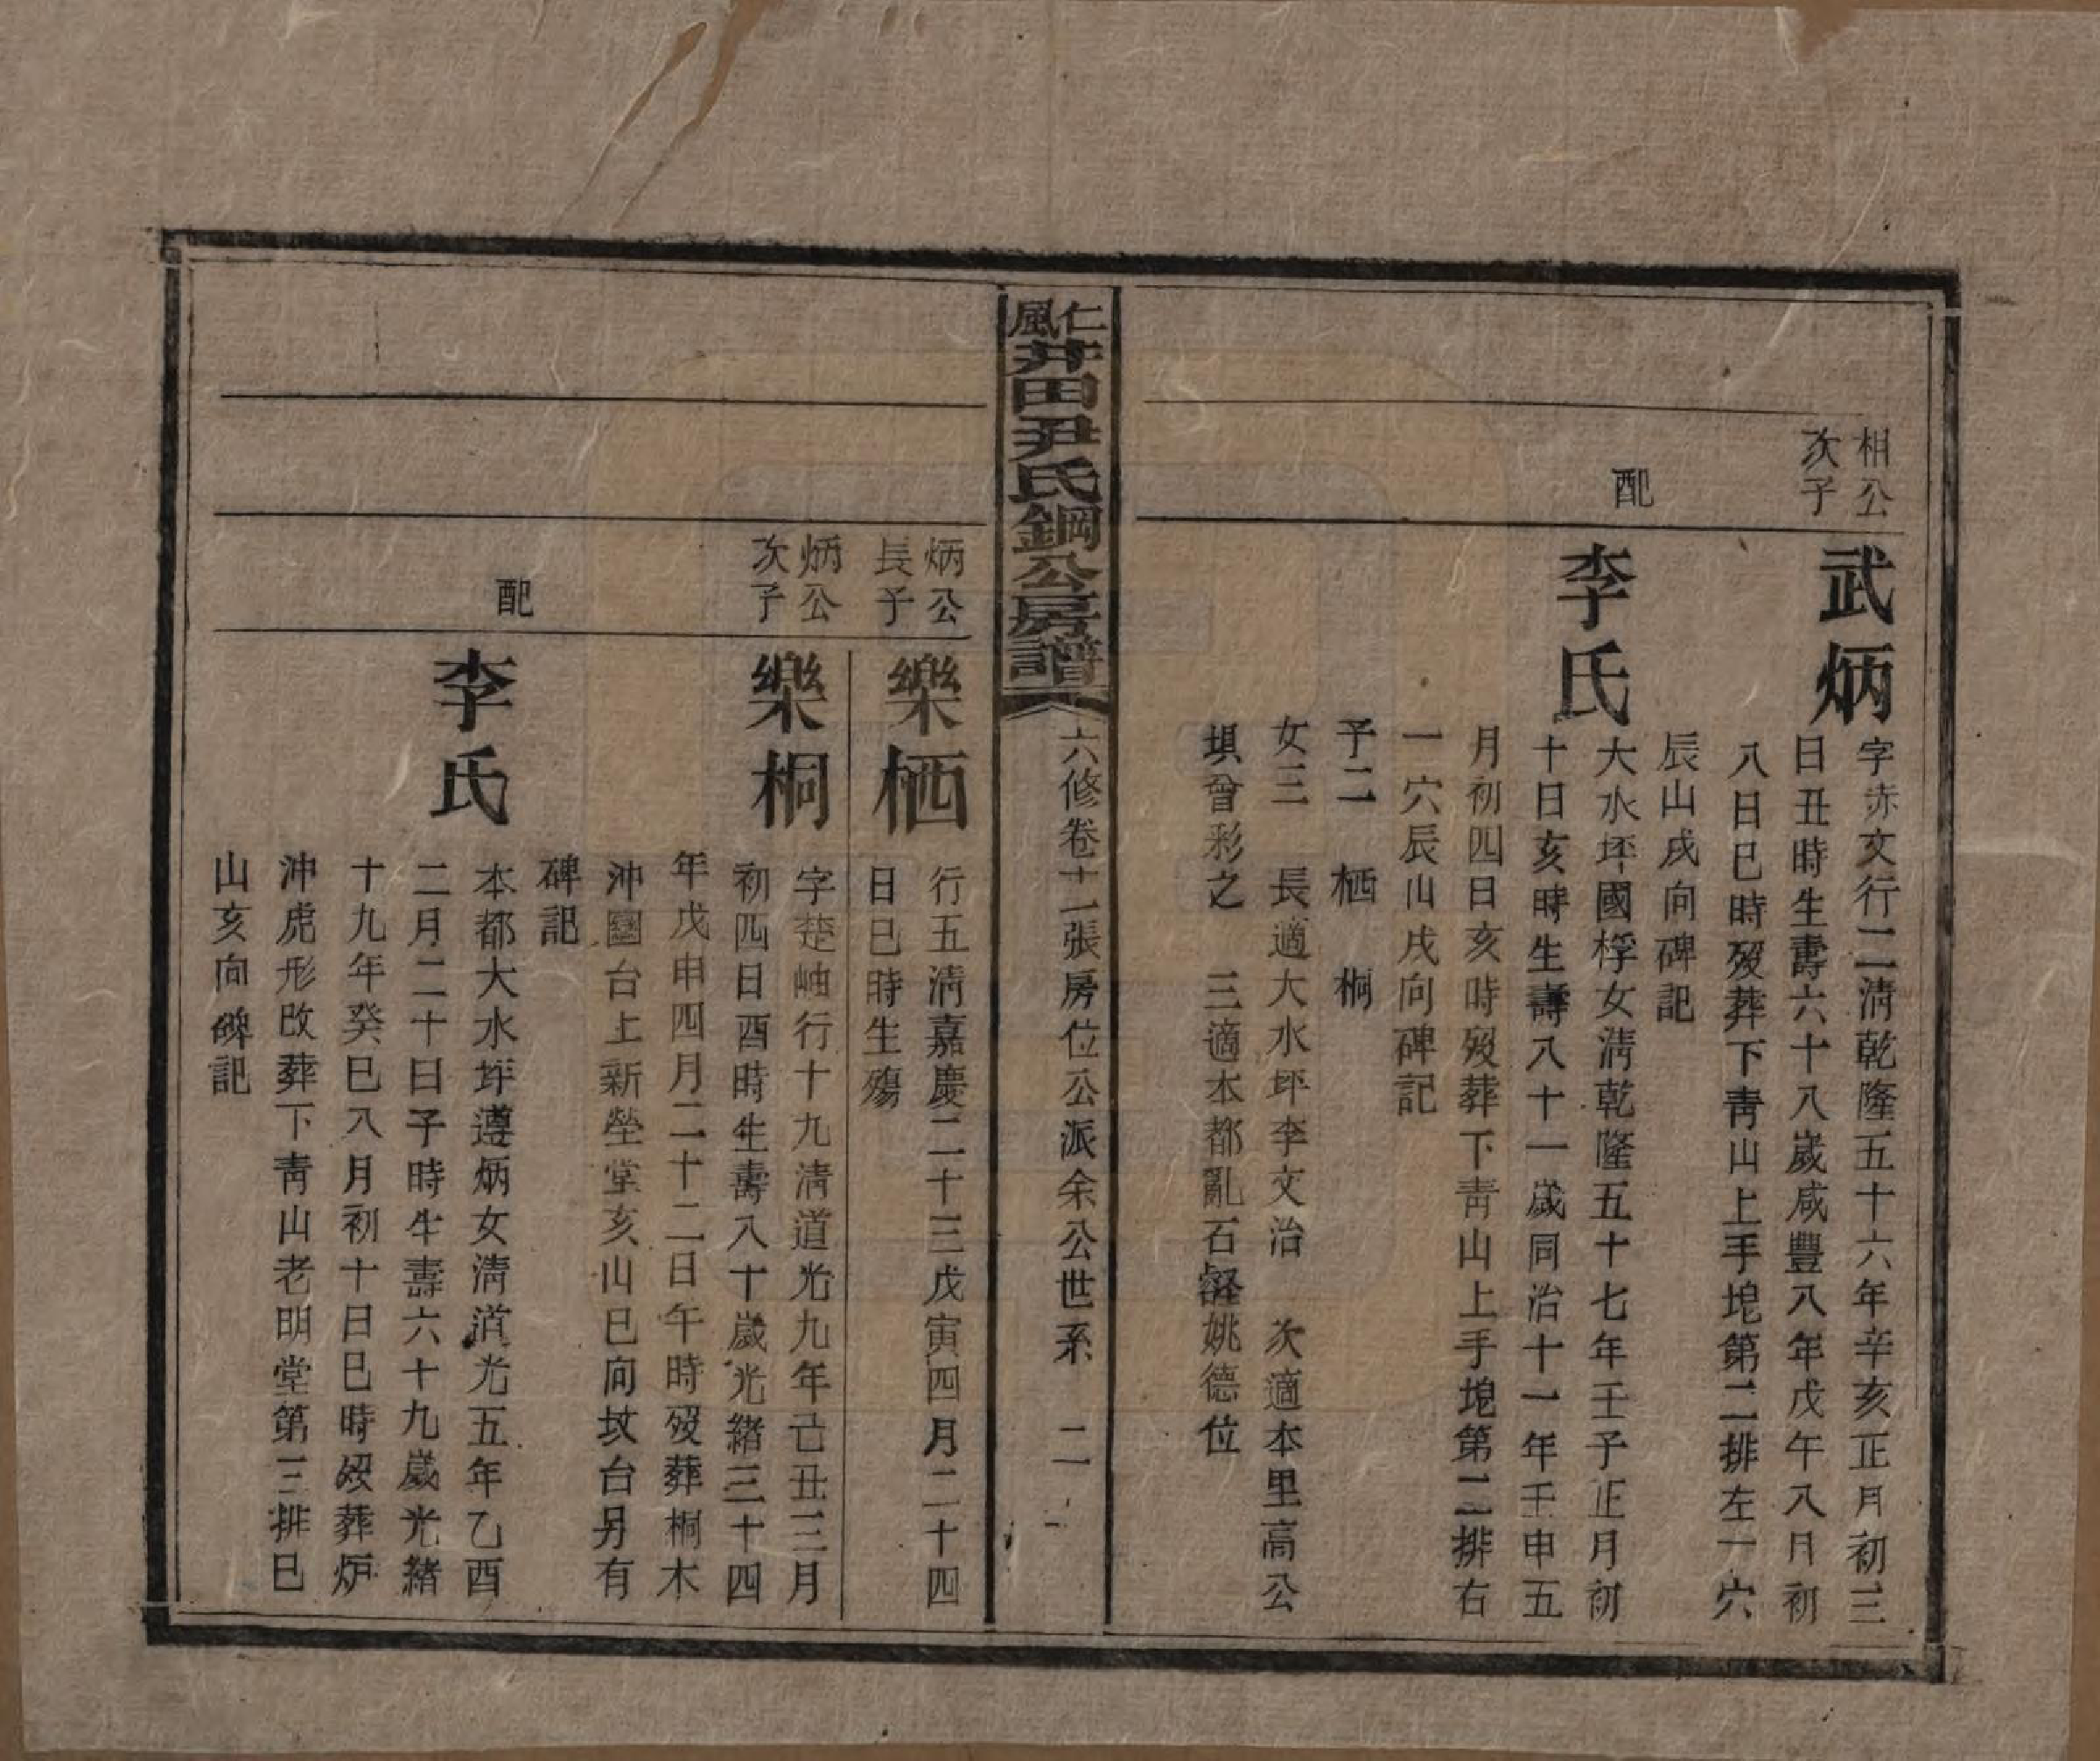 相公
次子
武炳
字赤文行二清乾隆五十六年辛亥正月初三
日丑時生壽六十八歲咸豐八年戊午八月初
八日巳時歿葬下靑山上手垉第二排左一穴
辰山戌向碑記
配
李氏
大水坪國桴女淸乾隆五十七年壬子正月初
十日亥時生壽八十一歲同治十一年壬申五
月初四日亥時歿葬下靑山上手垉第二排右
一穴辰山戌向碑記
子二 栖 桐
女三 長適大水坪李文治 次適本里高公
垻曾彩之 三適本都亂石磘姚德位
仁風井田尹氏鋼公房譜
六修卷十一張房位公派余公世系 二
炳公
長子
樂栖
行五淸嘉慶二十三戊寅四月二十四
日巳時生殤
炳公
次子
樂桐
字楚岫行十九淸道光九年己丑三月
初四日酉時生壽八十歲光緒三十四
年戊申四月二十二日午時歿葬桐木
沖團台上新塋堂亥山巳向坟台另有
碑記
配
李氏
本都大水坪遵炳女淸道光五年乙酉
二月二十日子時生壽六十九歲光緒
十九年癸巳八月初十日巳時歿葬炉
沖虎形改葬下靑山老明堂第三排巳
山亥向碑記